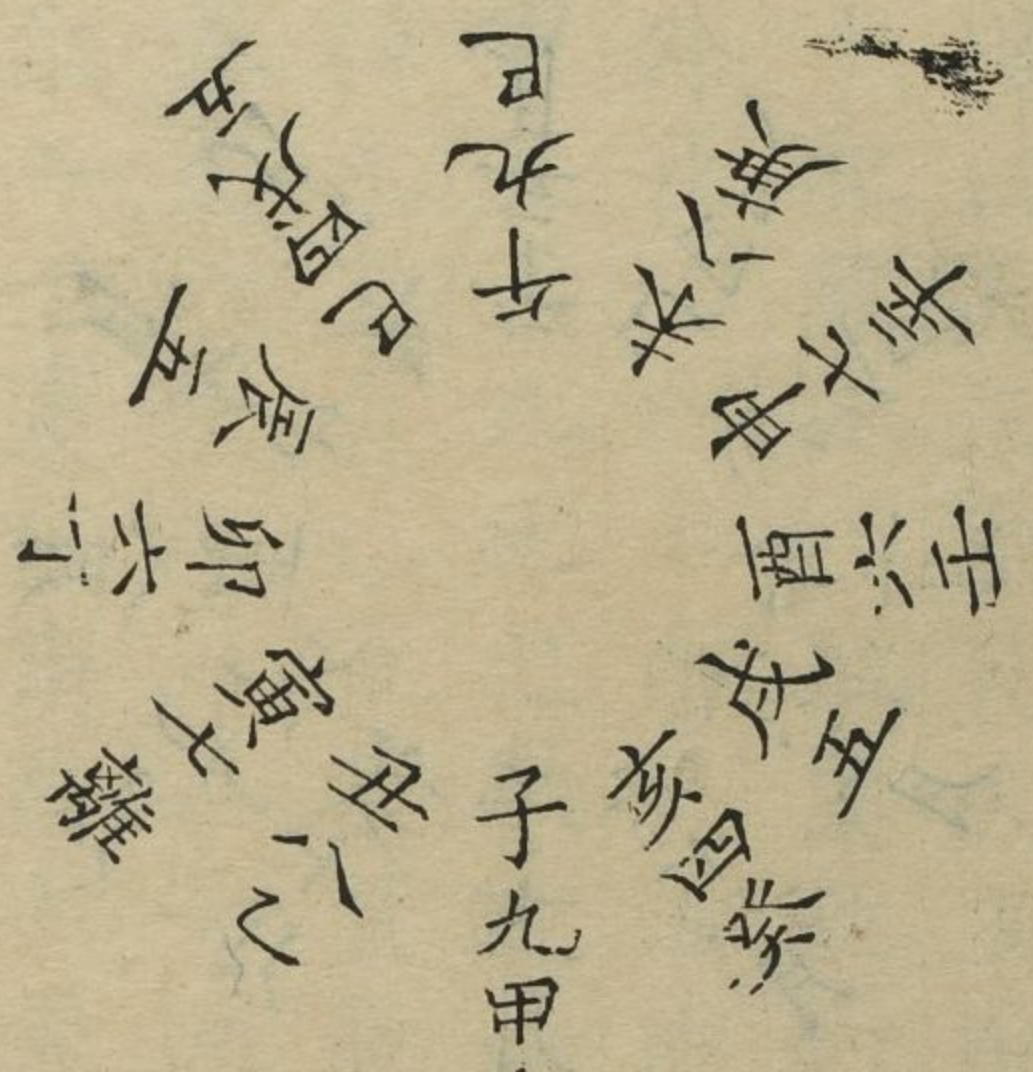 子九甲
丑八乙
寅七離
卯六丁
辰五
巳四戊
午九巳
未八庚
申七辛
酉六壬
戌五
亥四癸